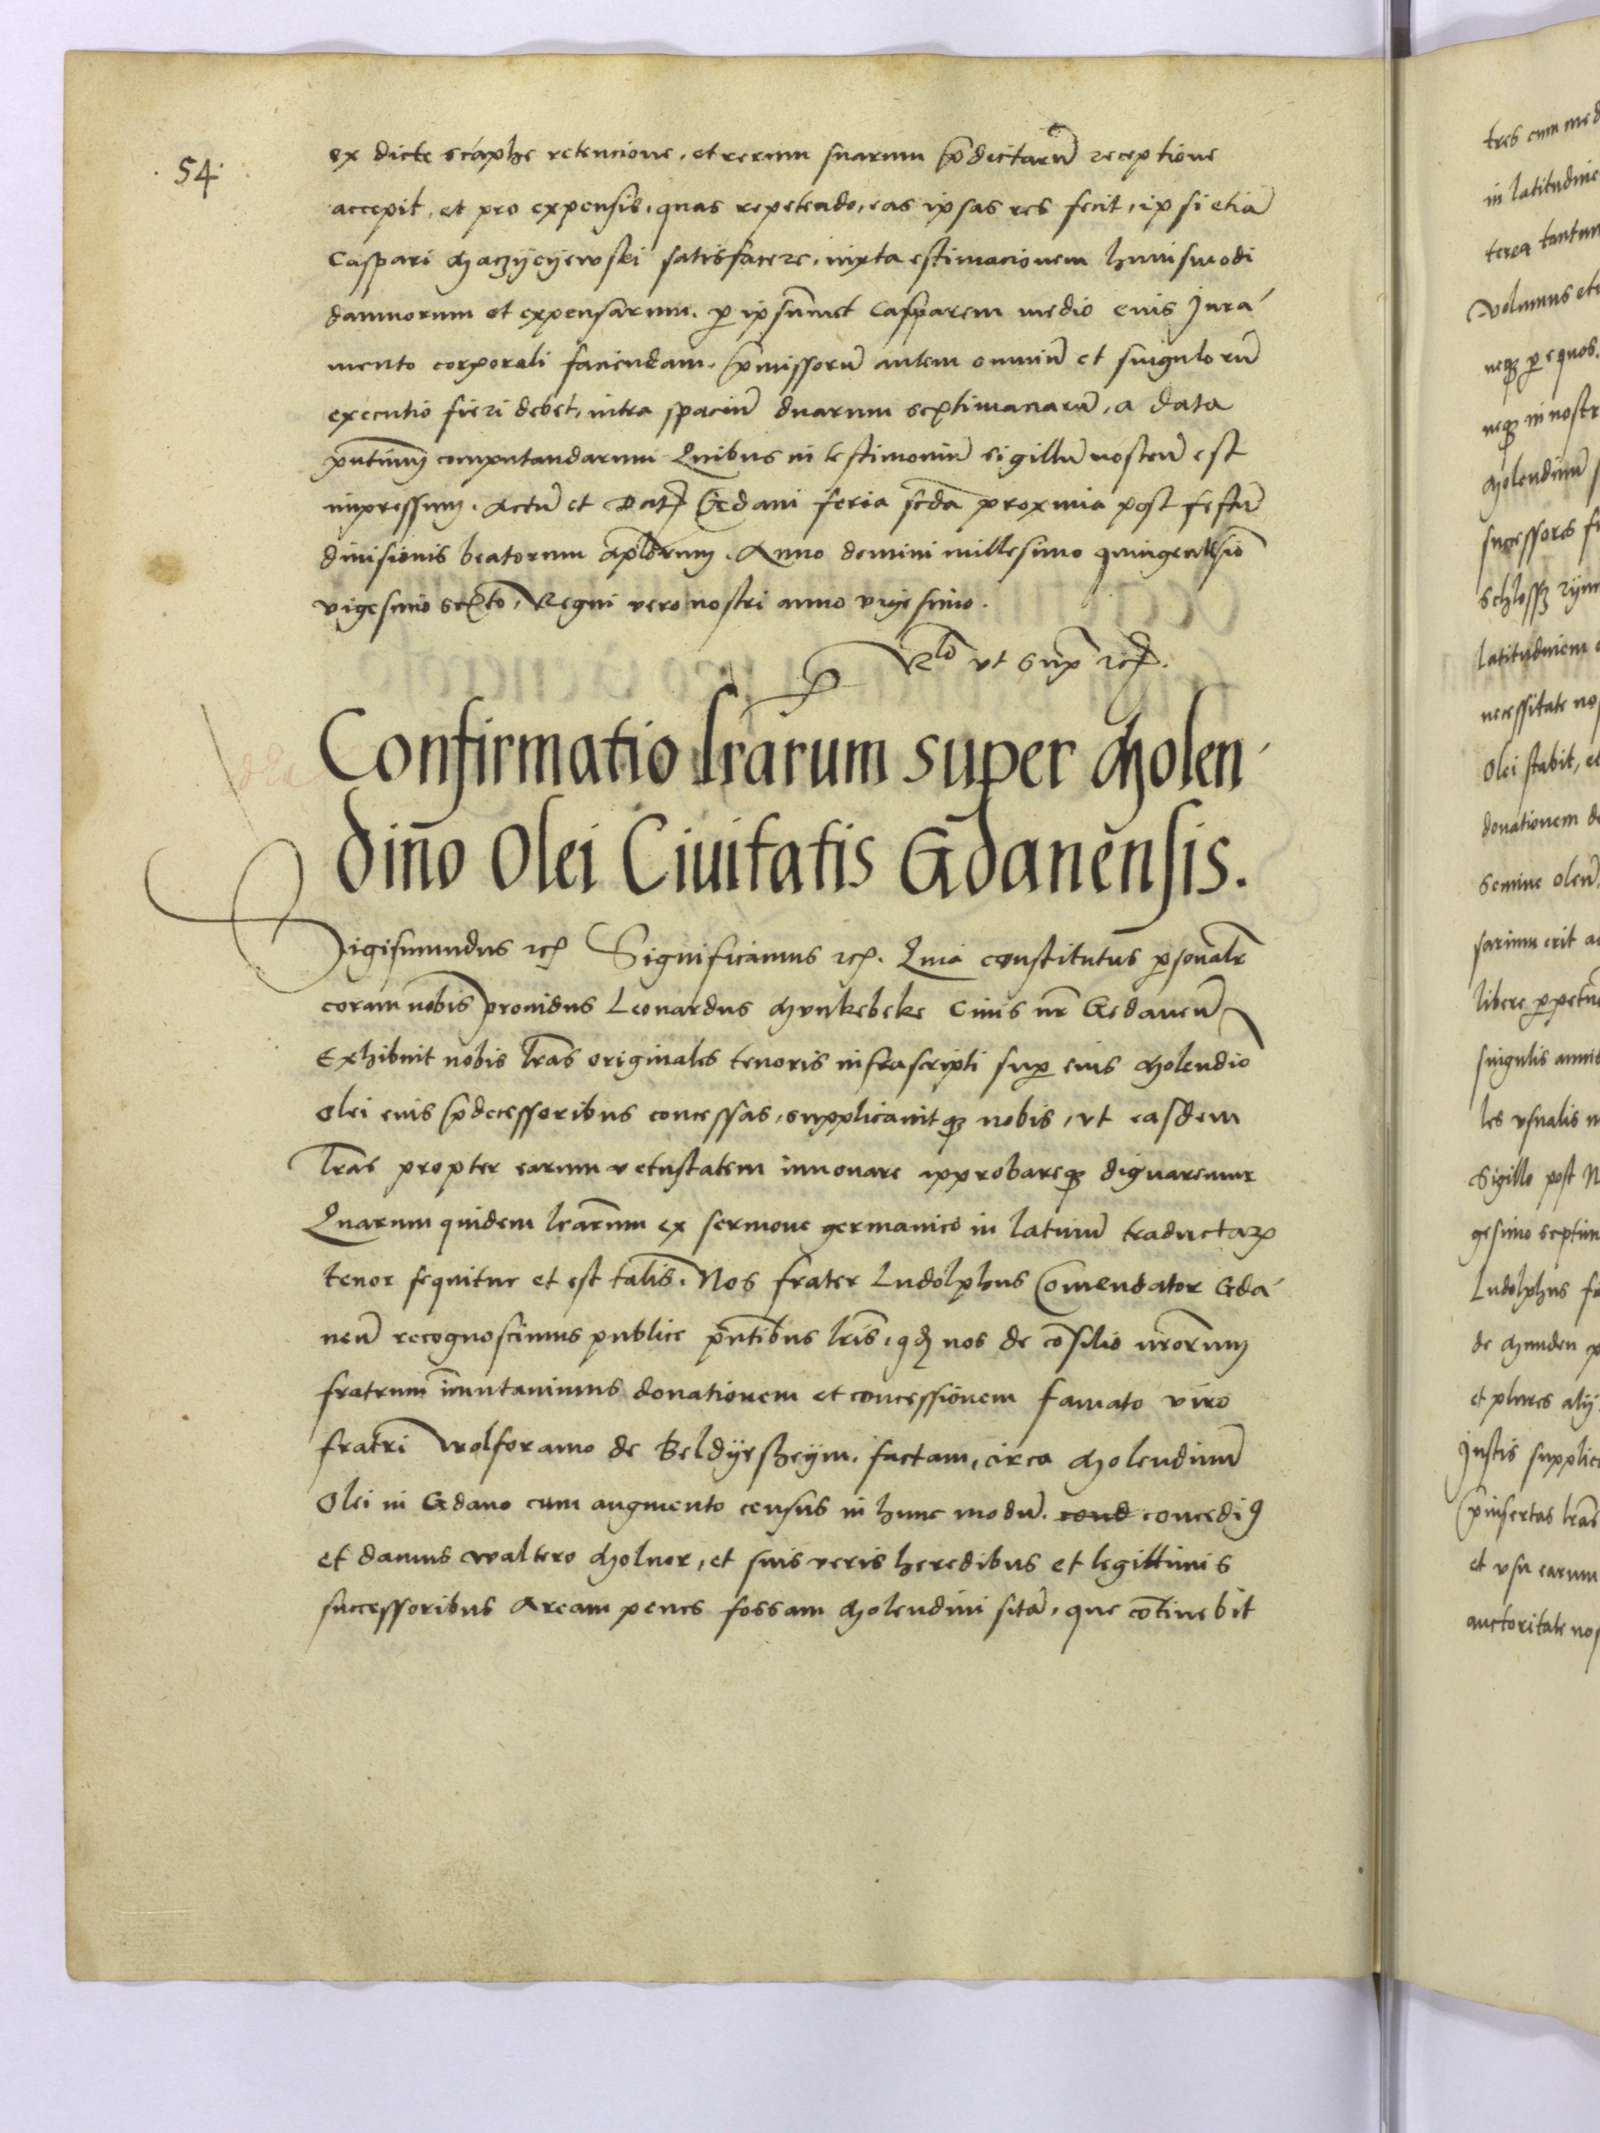 54
ex dicte scaphe retencione, et rerum suarum p̃dictarũ receptione
accepit, et pro expensis, quas repetendo, eas ipsas res fecit, ipsi etiã
Caspari Maczyeyewski satisfacere, iuxta estimacionem huiusmodi
damnorum et expensarum, p ipsũmet Casparem medio eius Jura
mento corporali faciendam. p̃missorũ autem omniũ et singulorũ
executio fieri debet, intra spaciũ duarum septimanarũ, a data
p̃ntium computandarum Quibus in testimoniũ sigillũ nostrũ est
impressum. Actũ et Dat Gedani feria scda proxima post festũ
diuisionis beatorum apl̃orum. Anno domini millesimo quingentesiõ
vigesimo sexto, Regni vero nostri anno vigesimo.
Rlõ vt sup̃ rc.
Confirmatio lr̃arum super Molen
diño Olei Ciuitatis Gdanẽnsis.
Sigismundus rc Significamus rc. Quia constitutus p̃sonalr̃
coram nobis prouidus Leonardus Munkebeke Ciuis nr̃ Gedaneñ
Exhibuit nobis lr̃as originales tenoris infrascripti sup eius Molendio
Olei eius p̃decessoribus concessas, supplicauitq3 nobis, vt easdem
lr̃as propter earum vetustatem innouare approbareq3 dignaremur
Quarum quidem lr̃arum ex sermone germanico in latinũ traductar
tenor sequitur et est talis. Nos frater Ludolphus Comendator Gda
neñ recognoscimus publice p̃ntibus lr̃is, qd nos de cõsilio nr̃orum
fratrum ĩmutauimus donationem et concessionem famato viro
fratri Wolframo de Beldyrsheym, factam, circa Molendinũ
Olei in Gdano cum augmento census in hunc modũ. cond concedi9
et damus Waltero Molner, et suis veris heredibus et legittimis
successoribus Aream penes fossam Molendini sitã, que cõtinebit
tres cum med
in latitudine
terea tantum
Volumus et
neq3 p equos
neq3 in nostr
Molendinũ
successores
schloss3
latitudinem
necessitate
Olei stabit, et
donationem de
semine oleũ
sarium erit
libere ppetue
singulis annis
les vsualis
Sigillo post
gesimo septim
Ludolphus
de Munden
et plures alij
Justis supplic
p̃insertas lr̃as
et vsu earum
auctoritate nos